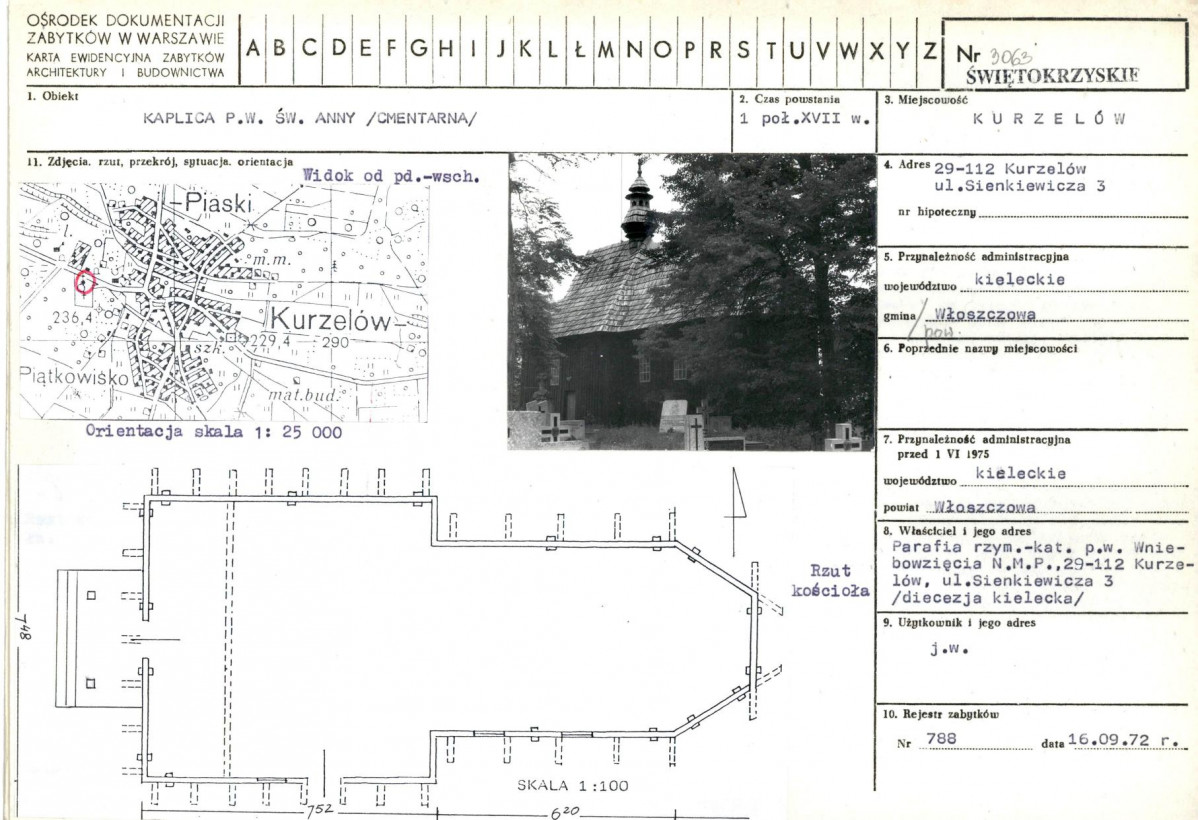 OŚRODEK DOKUMENTACJI
ZABYTKÓW W WARSZAWIE
KARTA EWIDENCYJNA ZABYTKÓW
ARCHITEKTURY I BUDOWNICTWA
A B C D E F G H I J K L Ł M N O P R S T U V W X Y Z
Nr 3063
ŚWIĘTOKRZYSKIE
1. Obiekt
KAPLICA P.W. ŚW. ANNY /CMENTARNA/
2. Czas powstania
1 poł.XVII w.
3. Miejscowość
KURZELÓW
11. Zdjęcia. rzut, przekrój, sytuacja. orientacja
Widok od pd.-wsch.
-Piaski
l.
m.m.
236,4
Kurzelów-
szk.
229,4
290
Piątkowisko
mat.bud.
Orientacja skala 1: 25 000
4. Adres 29-112 Kurzelów
ul.Sienkiewicza 3
nr hipoteczny
5. Przynależność administracyjna
województwo kieleckie
gmina / Włoszczowa
pow.
6. Poprzednie nazwy miejscowości
7. Przynależność administracyjna
przed 1 VI 1975
województwo kieleckie
powiat Włoszczowa
8. Właściciel i jego adres
Parafia rzym.-kat. p.w. Wnie-
bowzięcia N.M.P.,29-112 Kurze-
lów, ul.Sienkiewicza 3
/diecezja kielecka/
9. Użytkownik i jego adres
j.w.
10. Rejestr zabytków
Nr 788 data 16.09.72 r.
Rzut
kościoła
748
SKALA 1:100
752
620